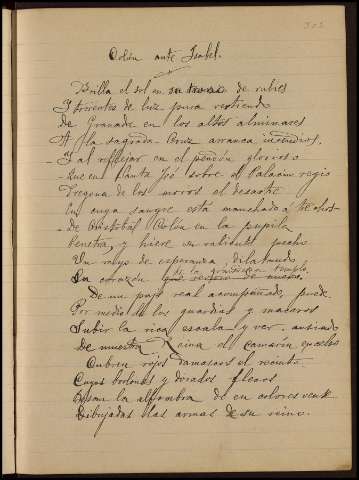 Colón ante Isabel.
Brilla el sol en su trono de rubíes
I torrentes de luz pura vertiendo
de Granada en los altos alminares
A la sagrada Cruz arranca incendios,
I al reflejar en el peñón glorioso
Que en planta fijó sobre el Palacio regio
Pregona de los moros el desastre
En cuya sangre está manchado
de Cristóbal Colón en la pupila
Penetra, y hiere en valiente pecho
Un rayo de esperanza, dilatando
Su corazón de la grandeza templo
De un paje real acompañado, puede
Por medio de los guardias y maceros
Subir la rica escala y ver
De muestra reina el camarín excelso
Cubren rojos damascos el recinto
Cuyos borlones y dorados flecos
Besan la alfombra de en colores
Dibujadas las armas de su reino.